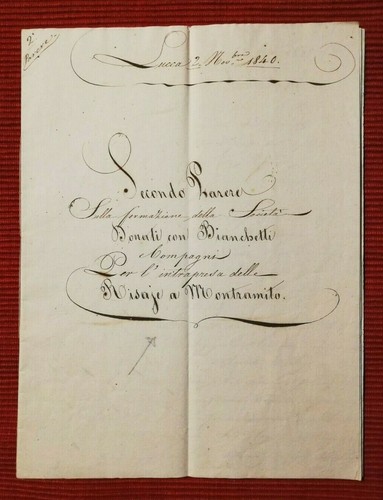 2º
Parere
Lucca 2. Nov.bre 1840.
Secondo Parere
Sulla formazione della Società
Donati con Bianchetti
e Compagni
Per l'intrapresa delle
Risaje a Montramito.